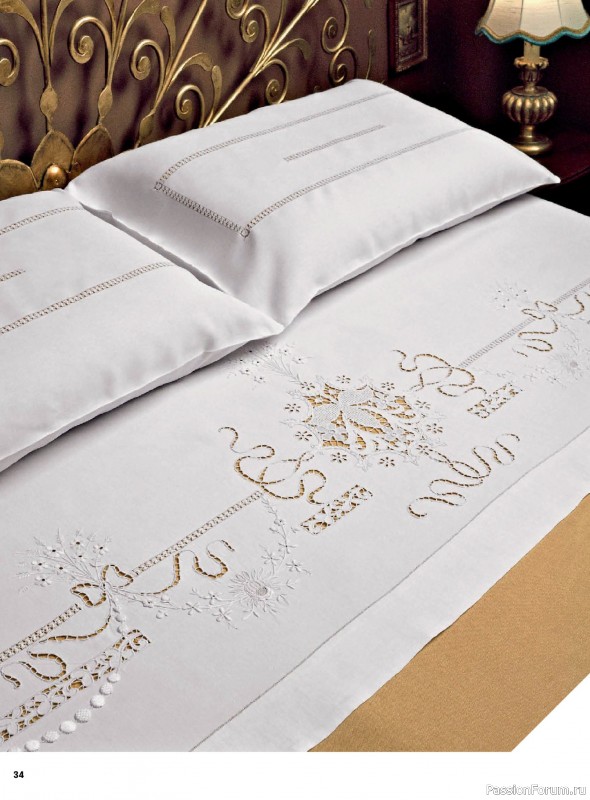 34
PassionForum.ru